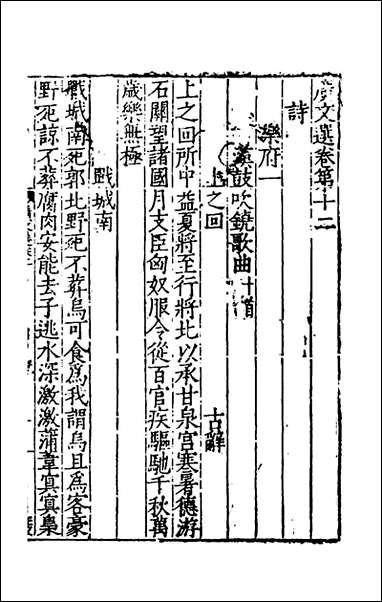 廣文選卷第十二
詩
樂府一
漢鼓吹鐃歌曲十首
上之回 古辭
上之回所中益夏將至行將北以承甘泉宮寒暑德游
石關望諸國月支臣匈奴服令從百官疾驅馳千秋萬
歲樂無極
戰城南
戰城南死郭北野死不葬烏可食為我謂烏且為客豪
野死諒不葬腐肉安能去子逃水深激激蒲葦冥冥梟